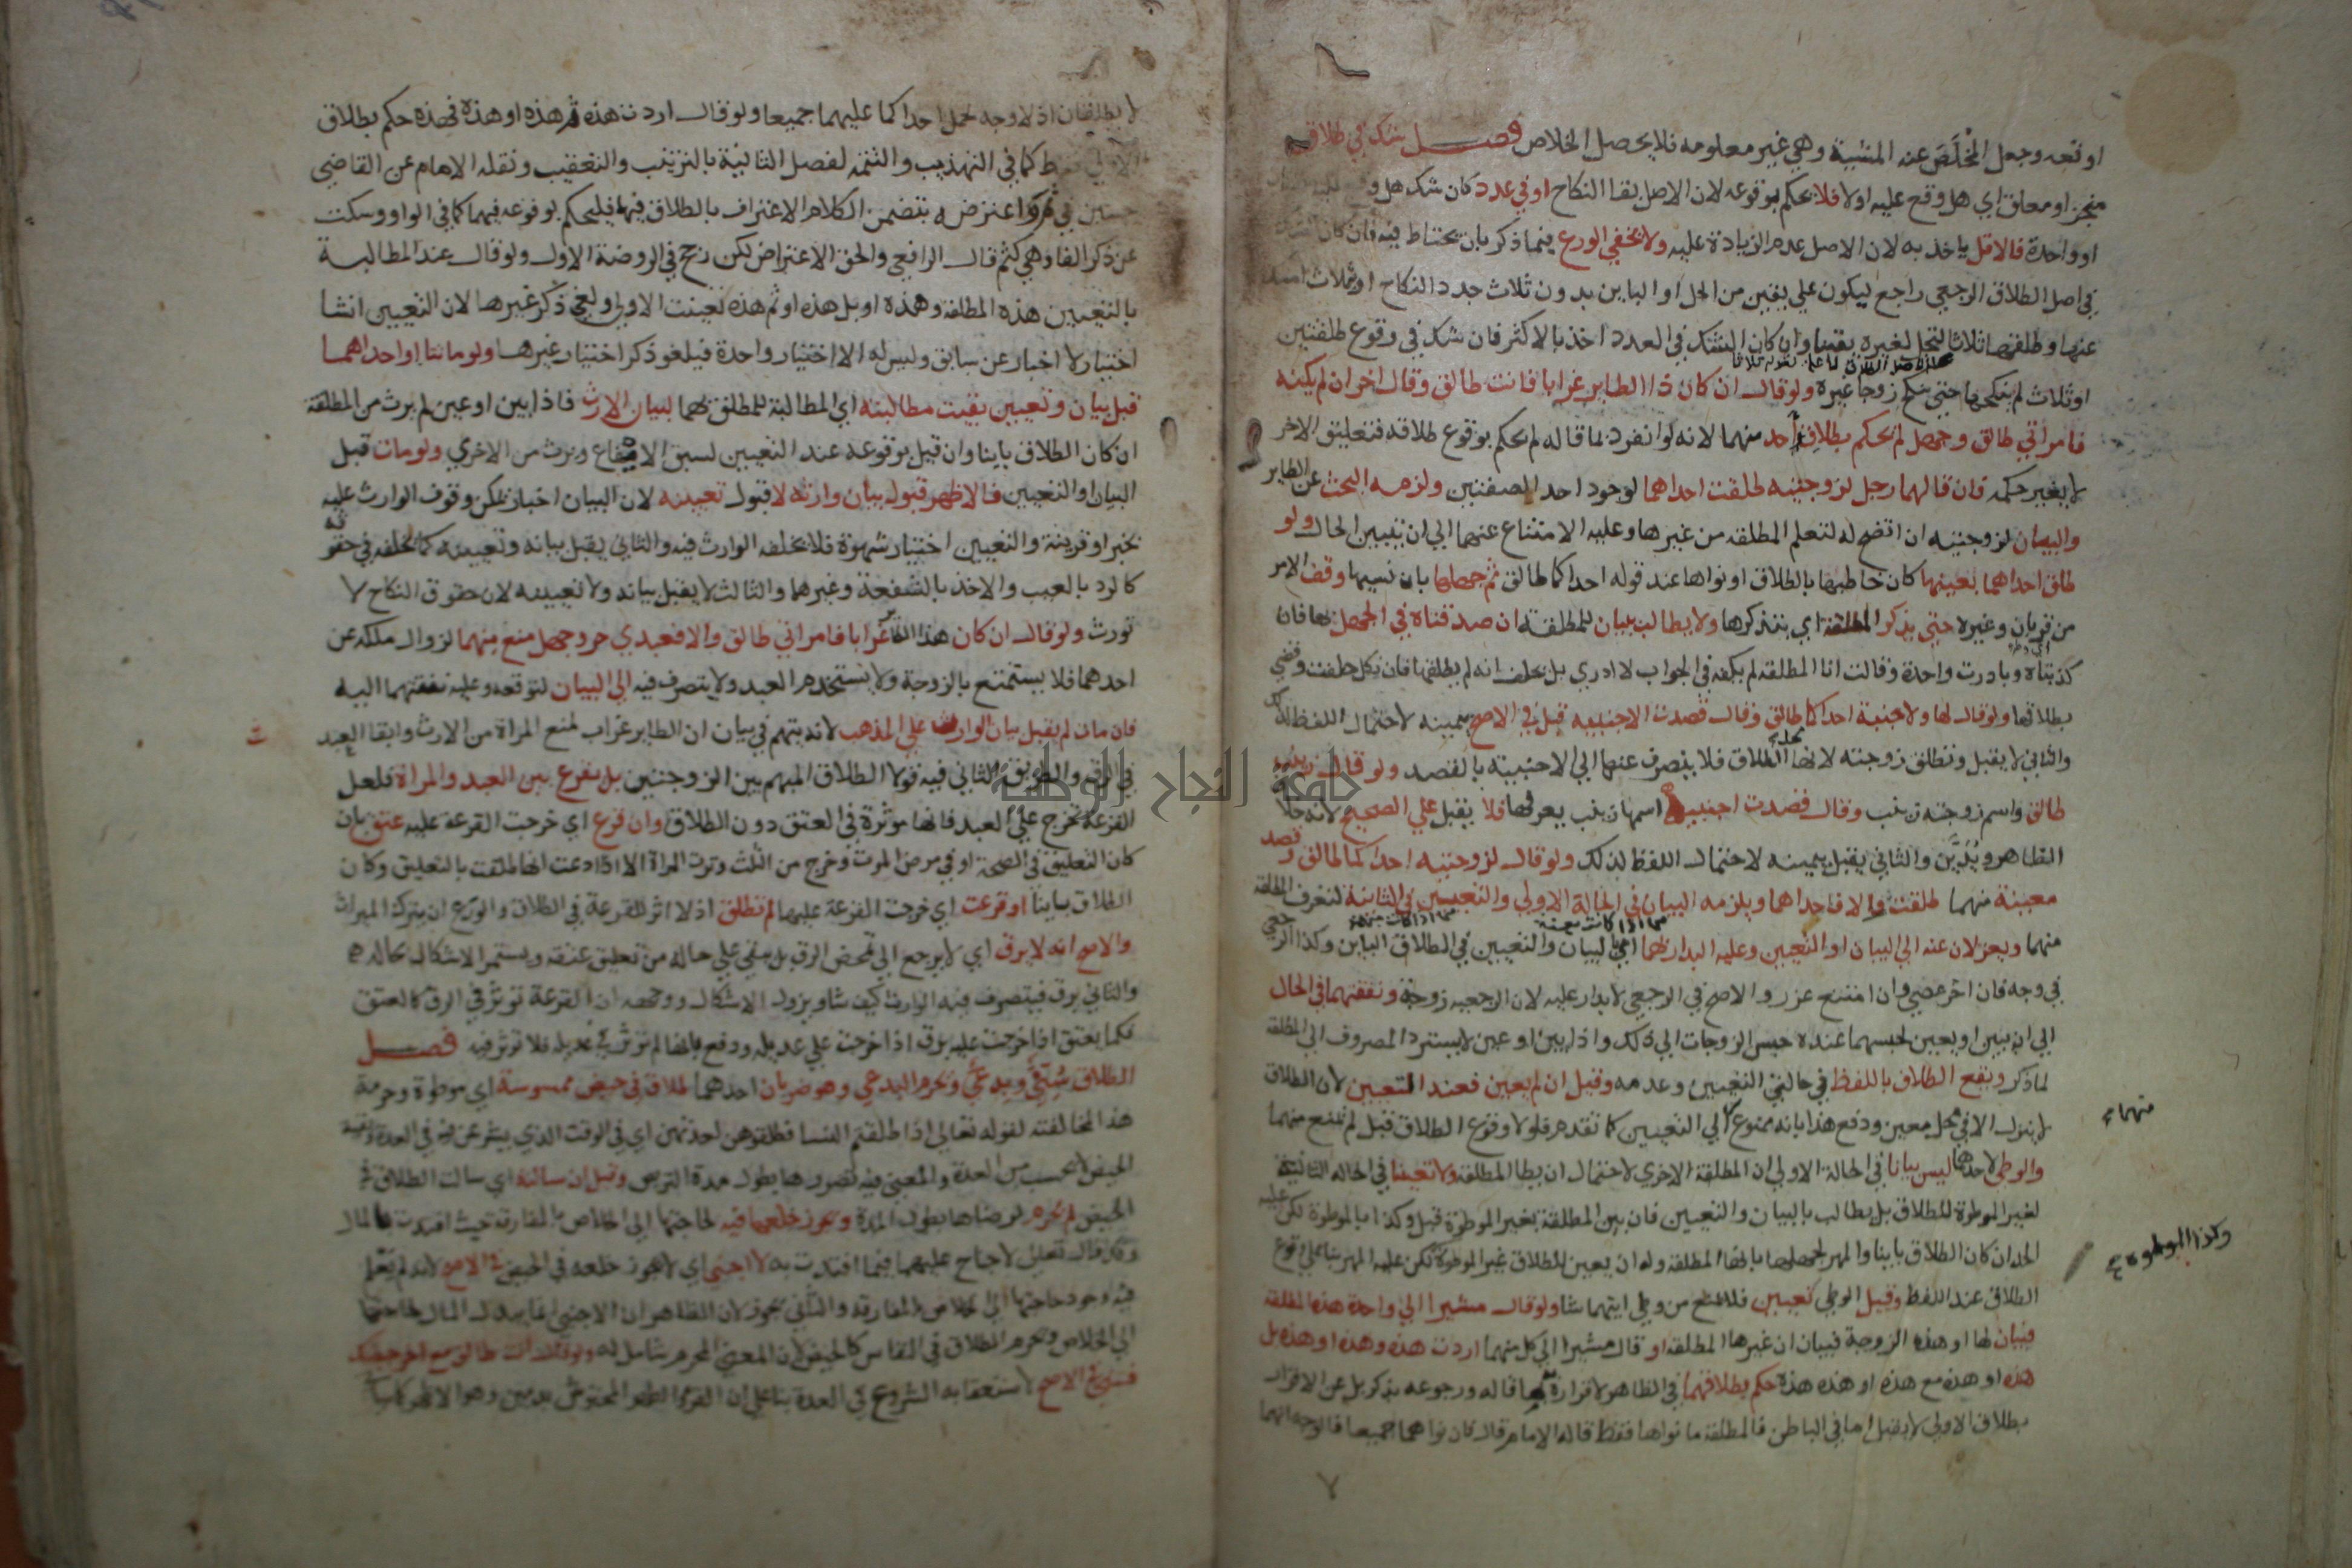 اوقعه وجعل المخلَص عنه المشيية وهي غير معلومه فلا يحصل الخلاص فصل شك في طلاق
منجز او معلق اي هل وقع عليه اولا فلا يحكم بوقوعه لان الاصل بقا النكاح او في عدد كان شك هل وقع
او واحدة فالاقل ياخذ به لان الاصل عدم الزيادة عليه ولا يخفي الورع فيما ذكر بان يحتاط فيه فان كان الشك
في اصل الطلاق الرجعي راجع ليكون علي يقين من الحل او الباين بدون ثلاث جدد النكاح او بثلاث امسك
عنها وطلقها ثلاثا لتحل لغيره يقينا وان كان الشك في العدد اخذ بالاكثر فان شك في وقوع طلقتين
او ثلاث لم ينكحها حتي تنكح زوجا غيره ولو قال ان كان ذا الطاير غرابا فانت طالق وقال اخر ان لم يكنه
فامراتي طالق وجهل لم يحكم بطلاق احد منهما لانه لو انفرد بما قاله لم يحكم بوقوع طلاقه فتعليق الاخر
لا يغير حكمه فان قالهما رجل لزوجتيه طلقت احداهما لوجود احد الصفتين ولزمه البحث عن الطاير
والبيان لزوجتيه ان اتضح له لتعلم المطلقه من غيرها وعليه الامتناع عنهما الي ان يتبين الحال ولو
طلق احداهما بعينها كان خاطبها بالطلاق او نواها عند قوله احداكما طالق ثم جهلها بان نسيها وقف الامر
من قربان وغيره حتي يذكر المطلقه اي يتذكرها ولا يطالب ببيان للمطلقة ان صدقتاه في الجهل بها فان
كذبتاه وبادرت واحدة وقالت انا المطلقه لم يكفه في الجواب لا ادري بل يحلف انه لم يطلقها فان نكل حلفت وقضي
بطلاقها ولو قال لها ولاجنبية احداكما طالق وقال قصدت الاجنبيه قبل في الاصح بيمينه لاحتمال اللفظ لذلك
والثاني لا يقبل وتطلق زوجته لانها محل الطلاق فلا ينصرف عنها الي الاجنبية بالقصد ولو قال زينب
طالق واسم زوجته زينب وقال قصدت اجنبيه اسمها زينب يعرفها فلا يقبل علي الصحيح لانه خلاف
الظاهر ويُدَيَّن والثاني يقبل بيمينه لاحتمال اللفظ لذلك ولو قال لزوجتيه احداكما طالق وقصد
معينة منهما طلقت والا فاحداهما ويلزمه البيان في الحالة الاولي والتعيين في الثانية لتعرف المطلقة
منهما ويعزلان عنه الي البيان او التعيين وعليه البدار بهما اي بالبيان والتعيين في الطلاق الباين وكذا الرجعي
في وجه فان اخر عصي وان امتنع عزر والاصح في الرجعي لا بدار عليه لان الرجعيه زوجة ونفقتهما في الحال
الي ان يبين او يعين لحبسهما عنده حبس الزوجات الي ذلك واذا بين او عين لا يسترد المصروف الي المطلقة
لما ذكر ويقع الطلاق باللفظ في حالتي التعيين وعدمه وقيل ان لم يعين فعند التعيين لان الطلاق
لا ينزل الا في محل معين ودفع هذا بانه ممنوع الي التعيين كما تقدم فلولا وقوع الطلاق قبل لم تمنع منهما
منهما
والوطي لاحداهما ليس بيانا في الحالة الاولي ان المطلقة الاخري لاحتمال ان يطا المطلقة ولا تعيينا في الحاله الثانية
لغير الموطوة للطلاق بل يطالب بالبيان والتعيين فان بين المطلقة بغير الموطوة قبل وكذا بالموطوة لكن عليه
وكذا الموطوة
الحد ان كان الطلاق باينا والمهر لجهلها بانها المطلقه وله ان يعين للطلاق غير الموطوة لكن عليه المهر بنا علي وقوع
الطلاق عند اللفظ وقيل الوطي تعيين فلا يمنع من وطي ايتهما شا ولو قال مشيرا الي واحدة هذه المطلقه
فبيان لها او هذه الزوجة فبيان ان غيرها المطلقه او قال مشيرا الي كل منهما اردت هذه وهذه او هذه بل
هذه او هذه مع هذه او هذه هذه حكم بطلاقهما في الظاهر لاقراره بما قاله ورجوعه بذكر بل عن الاقرار
بطلاق الاولي لا يقبل اما في الباطن فالمطلقة ما نواها فقط قاله الامام قال فان نواهما جميعا فالوجه انهما
لا يطلقان اذ لا وجه لحمل احداكما عليهما جميعا ولو قال اردت هذه ثم هذه او هذه فهذه حكم بطلاق
الاولي فقط كما في التهذيب والتتمة لفصل الثانية بالترتيب والتعقيب ونقله الامام عن القاضي
حسين في ثم واعترضه بتضمن الكلام الاعتراف بالطلاق فيهما فليحكم بوقوعه فيهما كما في الواو وسكت
عن ذكر الفا وهي كثم قال الرافعي والحق الاعتراض لكن رجح في الروضة الاول ولو قال عند المطالبة
بالتعيين هذه المطلقه وهذه او بل هذه او ثم هذه تعينت الاولي ولغي ذكر غيرها لان التعيين انشا
اختيار لا اخبار عن سابق وليس له الا اختيار واحدة فيلغو ذكر اختيار غيرها ولو ماتتا او احداهما
قبل بيان وتعيين بقيت مطالبته اي المطالبة للمطلق بهما لبيان الارث فاذا بين او عين لم يرث من المطلقة
ان كان الطلاق باينا وان قيل بوقوعه عند التعيين لسبق الايقاع ويرث من الاخري ولو مات قبل
البيان او التعيين فالاظهر قبول بيان وارثه لا قبول تعيينه لان البيان اخبار يمكن وقوف الوارث عليه
بخبر او قرينة والتعيين اختيار شهوة فلا يخلفه الوارث فيه والثاني يقبل بيانه وتعيينه كما يخلفه في حقوقه
كالرد بالعيب والاخذ بالشفعة وغيرهما والثالث لا يقبل بيانه ولا تعيينه لان حقوق النكاح لا
تورث ولو قال ان كان هذا الطاير غرابا فامراتي طالق والا فعبدي حر وجهل منع منهما لزوال ملكه عن
احدهما فلا يستمتع بالزوجة ولا يستخدم العبد ولا يتصرف فيه الي البيان لتوقعه وعليه نفقتهما اليه
فان مات لم يقبل بيان الوارث علي المذهب لانه يتهم في بيان ان الطاير غراب لمنع المراة من الارث وابقا العبد
في الرق والطريق الثاني فيه قولا الطلاق المبهم بين الزوجتين بل يقرع بين العبد والمراة فلعل
القرعة تخرج علي العبد فانها موثرة في العتق دون الطلاق وان قرع اي خرجت القرعة عليه عتق بان
كان التعليق في الصحة او في مرض الموت وخرج من الثلث وترث المراة الا اذا ادعت انها طلقت بالتعليق وكان
الطلاق باينا او قرعت اي خرجت القرعة عليها لم تطلق اذ لا اثر للقرعة في الطلاق والورع ان يترك الميراث
والاصح انه لا يرق اي لا يرجع الي تمحض الرق بل يبقي علي حاله من تعليق عتقه ويستمر الاشكال بحاله
والثاني يرق فيتصرف فيه الوارث كيف شا ويزول الاشكال ووجهه ان القرعة توثر في الرق كالعتق
فكما يعتق اذا خرجت عليه يرق اذا خرجت علي عديله ودفع بانها لم توثر في عديله فلا توثر فيه فصل
الطلاق سني وبدعي ويحرم البدعي وهو ضربان احدهما طلاق في حيض ممسوسة اي موطوة وحرمة
هذا لمخالفته لقوله تعالي اذا طلقتم النسا فطلقوهن لعدتهن اي في الوقت الذي يشرعن فيه في العدة وبقية
الحيض لا تحسب من العدة والمعني فيه تضررها بطول مدة التربص وقيل ان سالته اي سالت الطلاق في
الحيض لم يحرم لرضاها بطول المدة ويجوز خلعها فيه لحاجتها الي الخلاص بالمفارقة حيث افتدت بالمال
وقد قال تعالي لا جناح عليهما فيما افتدت به لا اجنبي اي لا يجوز خلعه في الحيض في الاصح لانه لم يعلم
فيه وجود حاجتها الي الخلاص بالمفارقة والثاني يجوز لان الظاهر ان الاجنبي انما يبذل المال لحاجتها
الي الخلاص ويحرم الطلاق في النفاس كالحيض لان المعني المحرم شامل له ولو قال انت طالق مع اخر حيضك
فسني في الاصح لاستعقابه الشروع في العدة بنا علي ان القرء الطهر المحتوش بدمين وهو الاظهر كما سيا
جامعة النجاح الوطنية